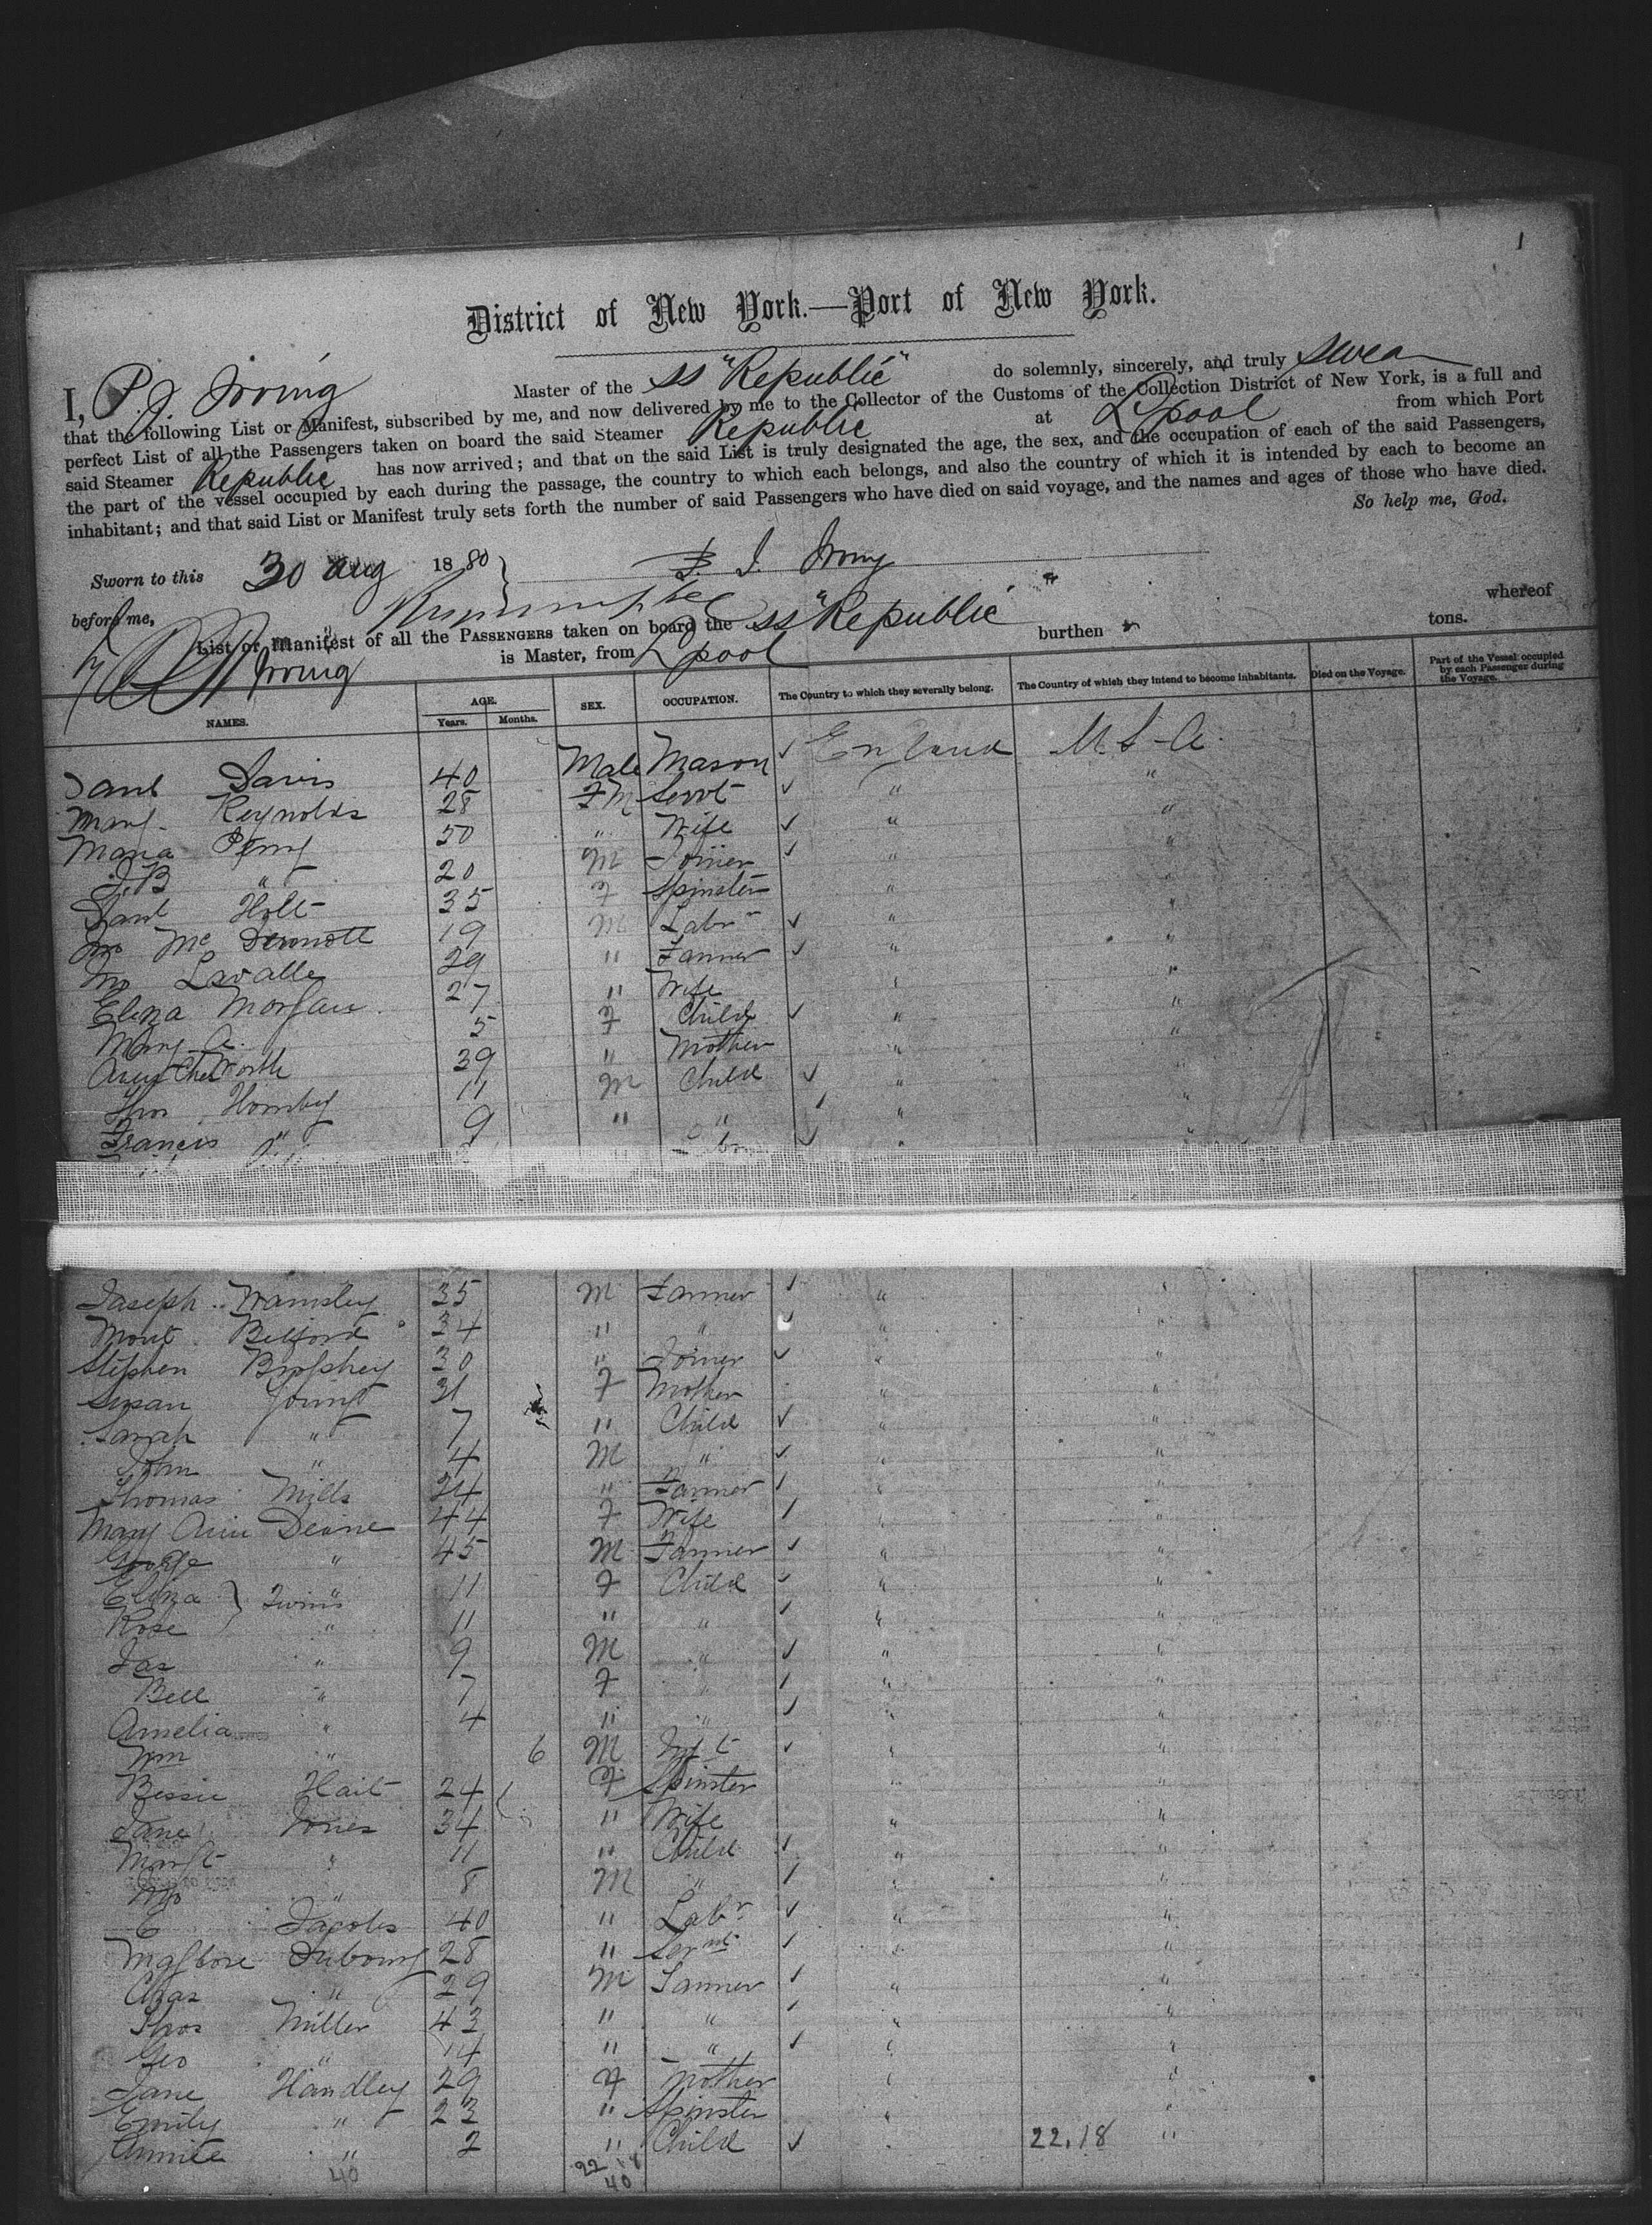 1
District of New York.—Port of New York.
I, P. J. Irving Master of the SS "Republic" do solemnly, sincerely, and truly swear
that the following List or Manifest, subscribed by me, and now delivered by me to the Collector of the Customs of the Collection District of New York, is a full and
perfect List of all the Passengers taken on board the said Steamer Republic at Lpool from which Port
said Steamer Republic has now arrived; and that on the said List is truly designated the age, the sex, and the occupation of each of the said Passengers,
the part of the vessel occupied by each during the passage, the country to which each belongs, and also the country of which it is intended by each to become an
inhabitant; and that said List or Manifest truly sets forth the number of said Passengers who have died on said voyage, and the names and ages of those who have died.
So help me, God.
Sworn to this 30 Aug 1880 P. J. Irving
before me,
List or Manifest of all the PASSENGERS taken on board the SS "Republic" whereof
Irving is Master, from Lpool burthen tons.
NAMES. AGE. Years. Months. SEX. OCCUPATION. The Country to which they severally belong. The Country of which they intend to become inhabitants. Died on the Voyage. Part of the Vessel occupied by each Passenger during the Voyage.
Davis 40 Male Mason England U.S.A.
Reynolds 28 FM Servt " "
Maria Perry 50 " Wife " "
J.B " 20 M Joiner " "
Holt 35 F Spinster " "
Jno Mc Dermott 19 M Labr " "
Jno Lavalle 29 " Farmer " "
Eliza Morgan 27 " Wife " "
Mary A. 5 F Child " "
39 " Mother " "
Thos Hornby 11 M Child " "
Francis " 9 " " " "
Joseph Wamsley 35 M Farmer " "
Belford 34 " " " "
Stephen Brophey 30 " Joiner " "
Susan Young 31 F Mother " "
Sarah " 7 " Child " "
John " 4 M " " "
Thomas Mills 24 " Farmer " "
Mary Ann Devine 44 F Wife " "
George " 45 M Farmer " "
Eliza } Twins " 11 F Child " "
Rose " 11 " " " "
Jas " 9 M " " "
Bell " 7 F " " "
Amelia " 4 " " " "
Wm " 6 M Inft " "
Bessie Hait 24 F Spinster " "
Jane Jones 34 " Wife " "
Margt " 11 " Child " "
" 8 M " " "
C Jacobs 40 " Labr " "
Dubourg 28 " Servnt " "
Chas " 29 M Farmer " "
Thos Miller 43 " " " "
Geo " 14 " " " "
Jane Handley 29 F Mother " "
Emily " 23 " Spinster " "
Annie " 2 " Child " 22.18 "
40 22 18
40